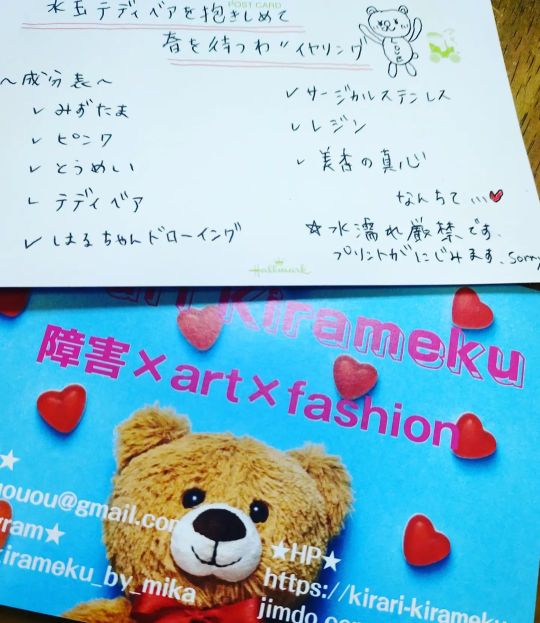 POST CARD
水玉テディベアを抱きしめて
春を待つわ"イヤリング
～成分表～
✓ みずたま
✓ ピンク
✓ とうめい
✓ テディベア
✓ はるちゃんドローイング
✓ サージカルステンレス
✓ レジン
✓ 美香の真心
なんちて…♥
☆水濡れ厳禁です、
プリントがにじみます、sorry
Hallmark
Kirameku
障害×art×fashion
ouou@gmail.com
ram★
kirameku_by_mika
★HP★
https://kirari-kirameku
jimdo